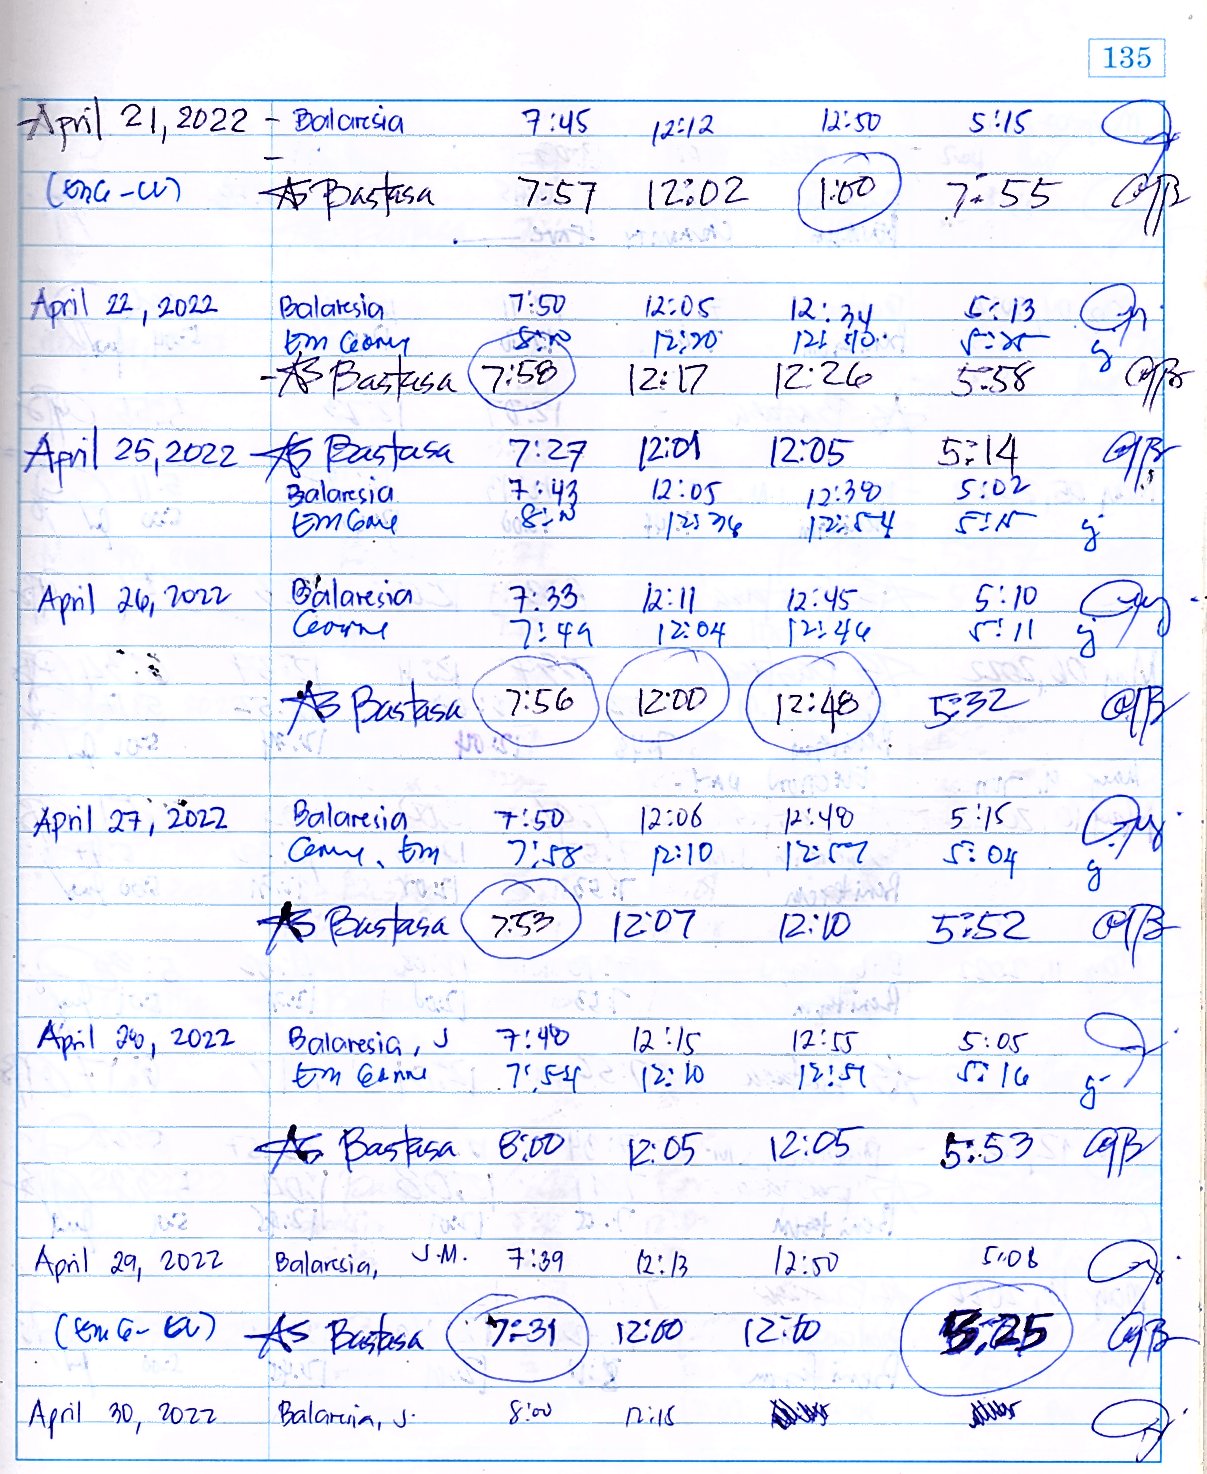 135
April 21, 2022 - Balaresia 7:45 12:12 12:50 5:15
AS Bastasa 7:57 12:02 1:00 7:55
April 22, 2022 Balaresia 7:50 12:05 12:34 5:13
Em 12:20 12:40 5:25
AS Bastasa 7:58 12:17 12:26 5:58
April 25, 2022 AS Bastasa 7:27 12:01 12:05 5:14
Balaresia 7:43 12:05 12:38 5:02
Em 12:36 12:54 5:15
April 26, 2022 Balaresia 7:33 12:11 12:45 5:10
7:49 12:04 12:46 5:11
AS Bastasa 7:56 12:00 12:48 5:32
April 27, 2022 Balaresia 7:50 12:06 12:48 5:15
Em 7:58 12:10 12:57 5:04
AS Bastasa 7:53 12:07 12:10 5:52
April 28, 2022 Balaresia, J 7:48 12:15 12:55 5:05
Em 7:54 12:10 12:51 5:16
AS Bastasa 8:00 12:05 12:05 5:53
April 29, 2022 Balaresia, J.M. 7:39 12:13 12:50 5:08
AS Bastasa 7:31 12:00 12:10 5:25
April 30, 2022 Balaresia, J. 8:00 12:15